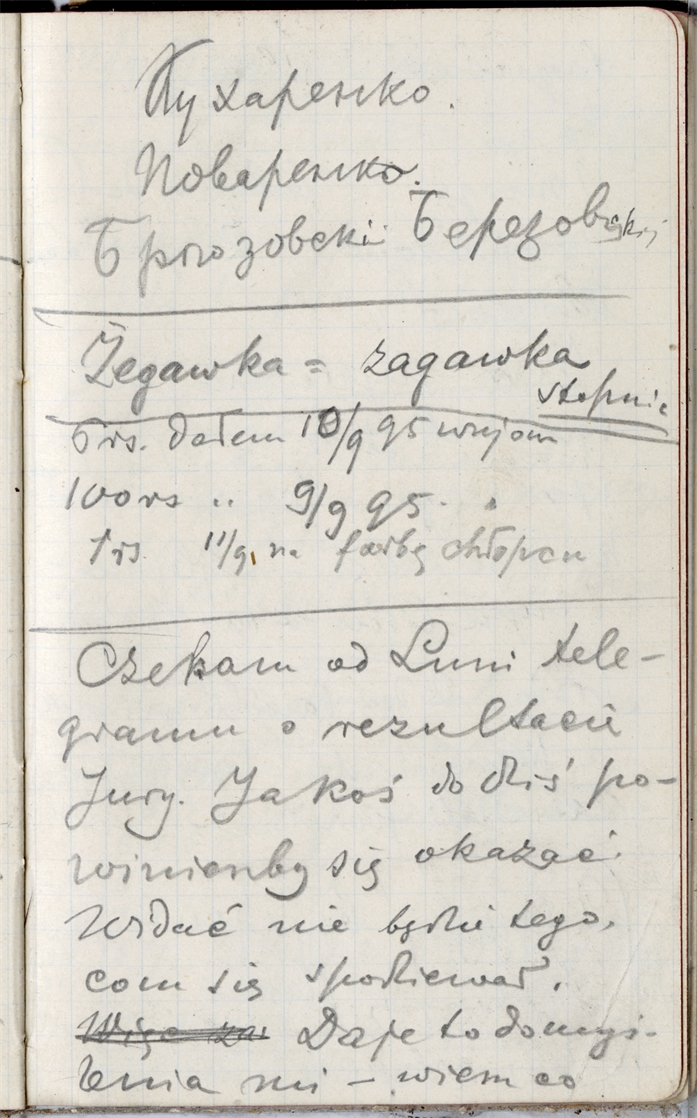 Пухаренко.
Поваренко.
Брюзовскі Березовскій
Żegawka = zagawka
stopnie
5 rs. dałem 10/9 95 wujom
100 rs „ 9/9 95 „
1 rs 11/9, na farbę chłopcu
Czekam od Luni tele-
gramu o rezultacie
Jury. Jakoś do dziś po-
winienby się okazać
Widać nie będzie tego,
com się spodziewał.
Więc za Daje to do myś-
lenia mi – wiem co